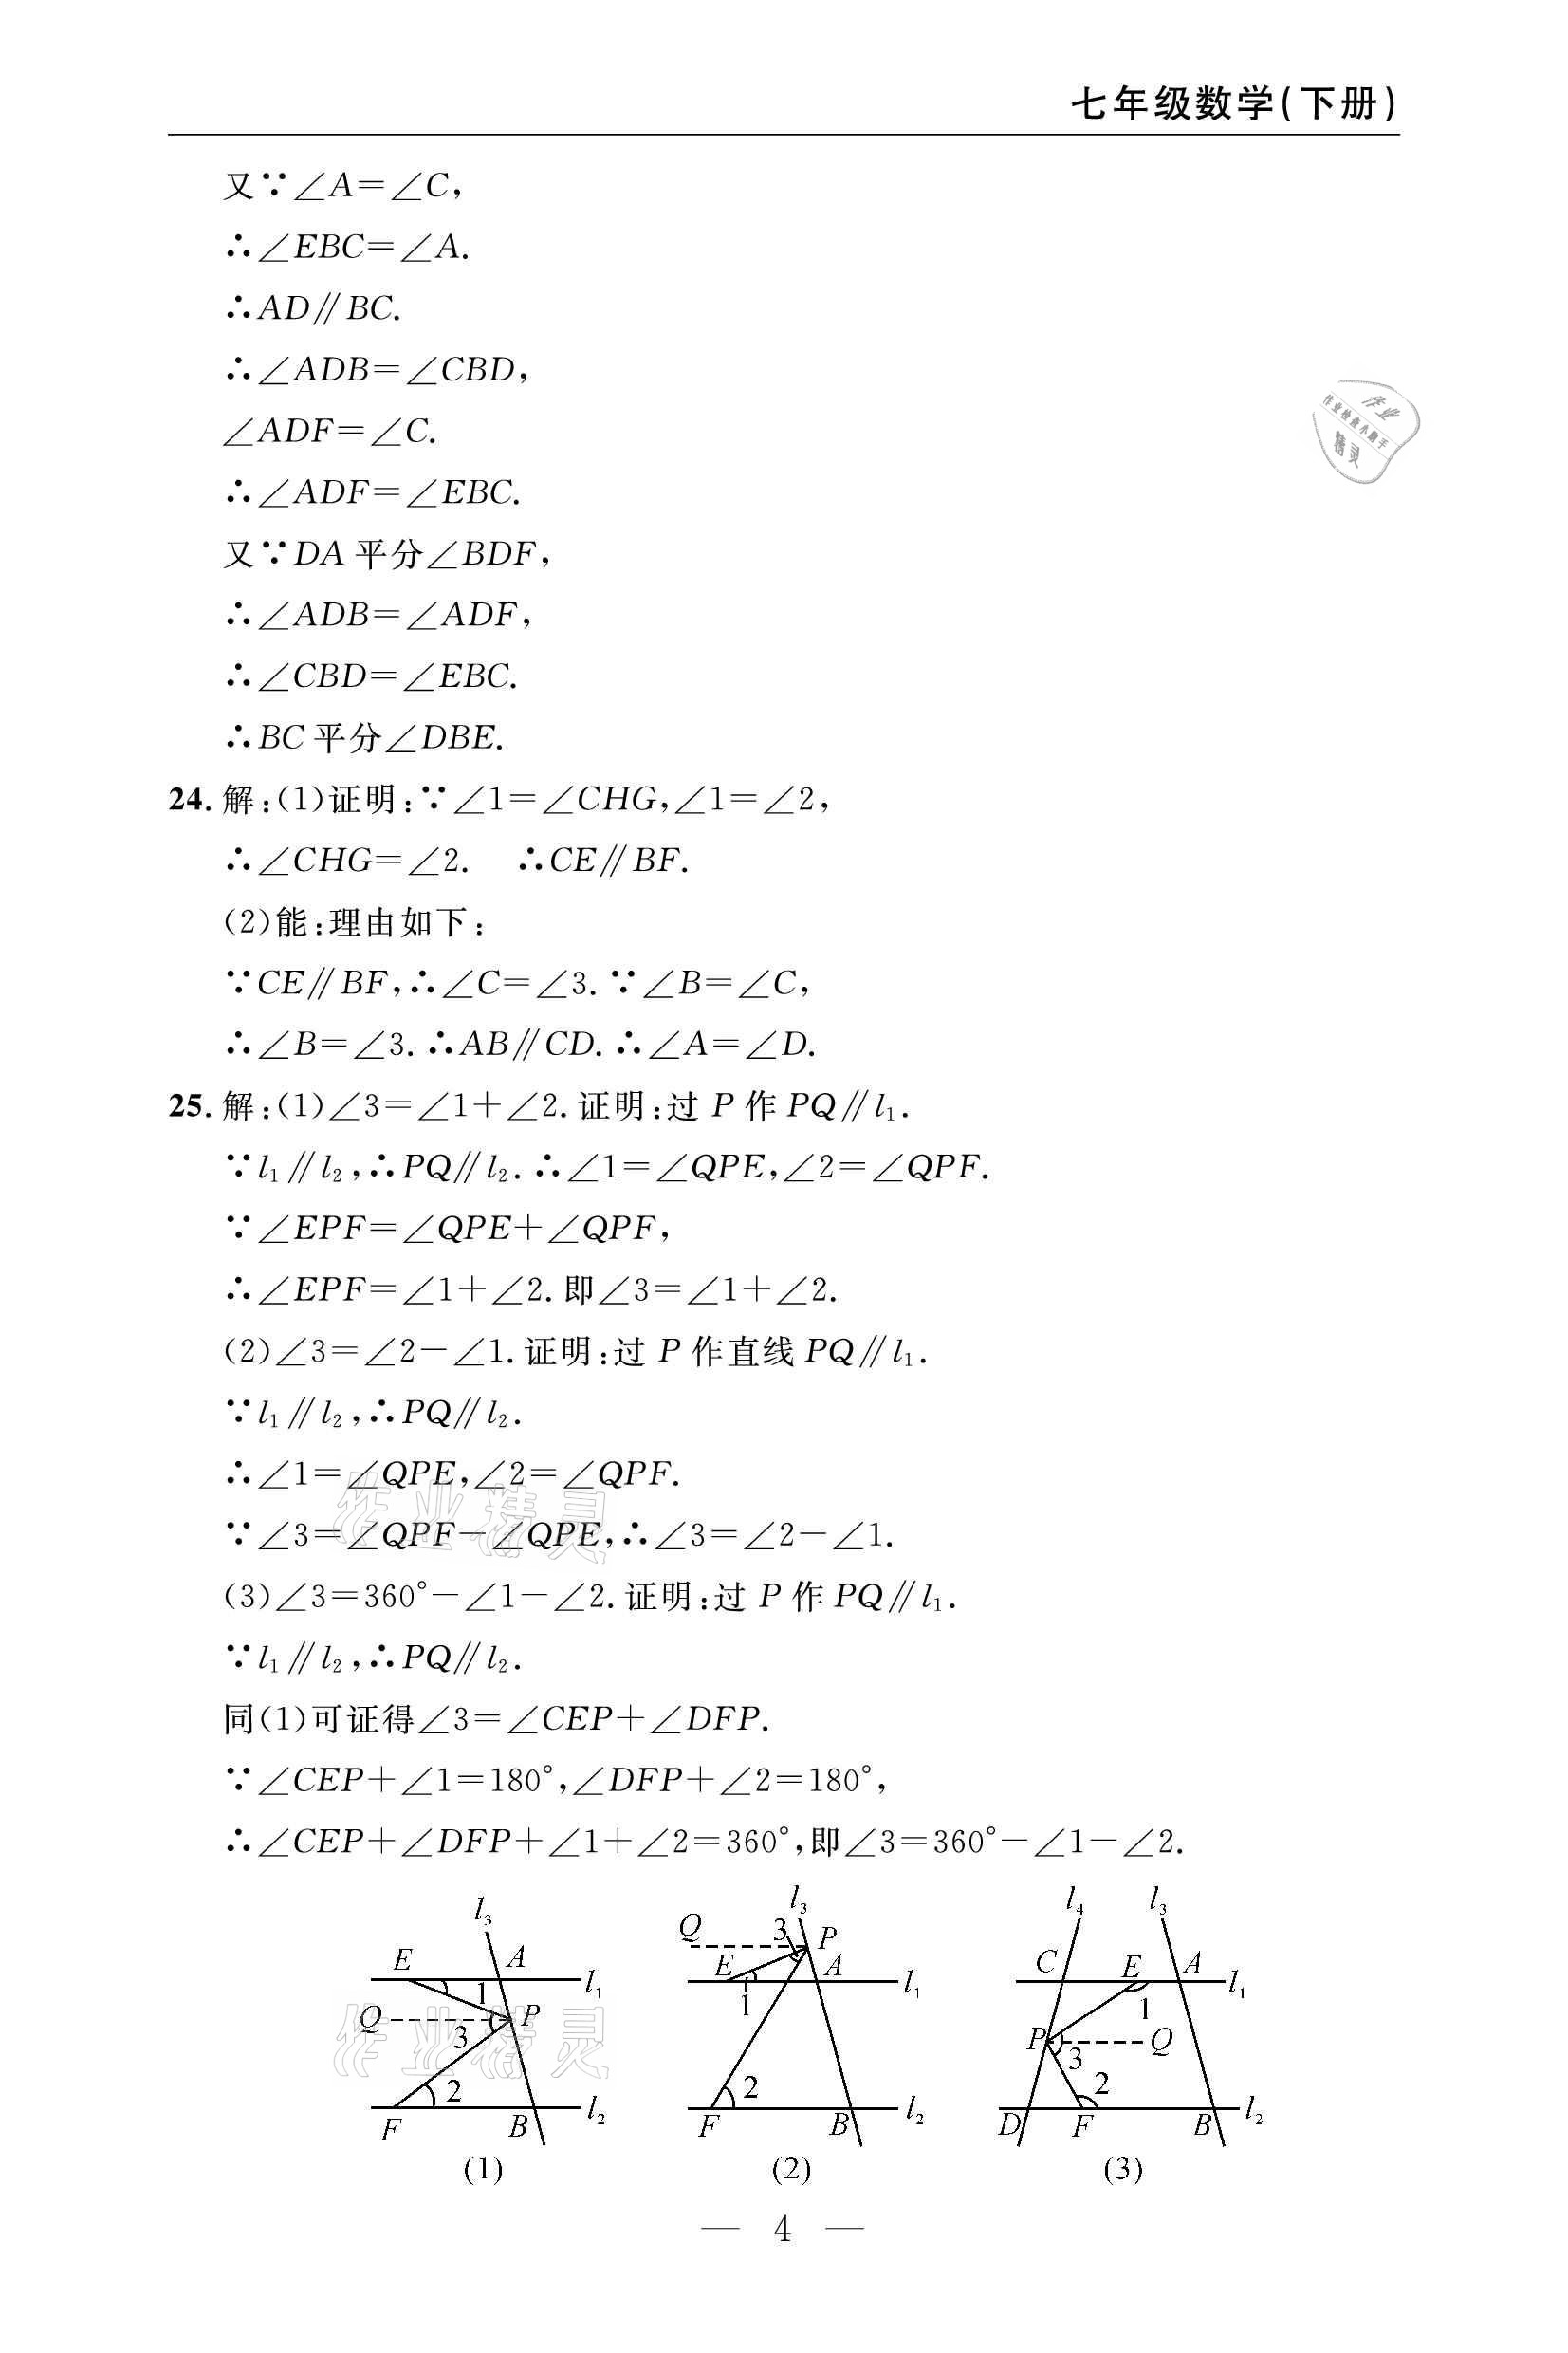 七年级数学(下册)
又∵∠A=∠C,
∴∠EBC=∠A.
∴AD∥BC.
∴∠ADB=∠CBD,
∠ADF=∠C.
∴∠ADF=∠EBC.
又∵DA平分∠BDF,
∴∠ADB=∠ADF,
∴∠CBD=∠EBC.
∴BC平分∠DBE.
24. 解:(1)证明:∵∠1=∠CHG,∠1=∠2,
∴∠CHG=∠2. ∴CE∥BF.
(2)能:理由如下:
∵CE∥BF,∴∠C=∠3.∵∠B=∠C,
∴∠B=∠3.∴AB∥CD.∴∠A=∠D.
25. 解:(1)∠3=∠1+∠2.证明:过P作PQ∥l₁.
∵l₁∥l₂,∴PQ∥l₂.∴∠1=∠QPE,∠2=∠QPF.
∵∠EPF=∠QPE+∠QPF,
∴∠EPF=∠1+∠2.即∠3=∠1+∠2.
(2)∠3=∠2-∠1.证明:过P作直线PQ∥l₁.
∵l₁∥l₂,∴PQ∥l₂.
∴∠1=∠QPE,∠2=∠QPF.
∵∠3=∠QPF-∠QPE,∴∠3=∠2-∠1.
(3)∠3=360°-∠1-∠2.证明:过P作PQ∥l₁.
∵l₁∥l₂,∴PQ∥l₂.
同(1)可证得∠3=∠CEP+∠DFP.
∵∠CEP+∠1=180°,∠DFP+∠2=180°,
∴∠CEP+∠DFP+∠1+∠2=360°,即∠3=360°-∠1-∠2.
l₃
E A
1 l₁
Q P
3
2
F B l₂
(1)
l₃
Q 3 P
E A
1 l₁
2
F B l₂
(2)
l₄ l₃
C E A
1 l₁
P Q
3
2
D F B l₂
(3)
— 4 —
作业
作业检查小助手
精灵
作业精灵
作业精灵